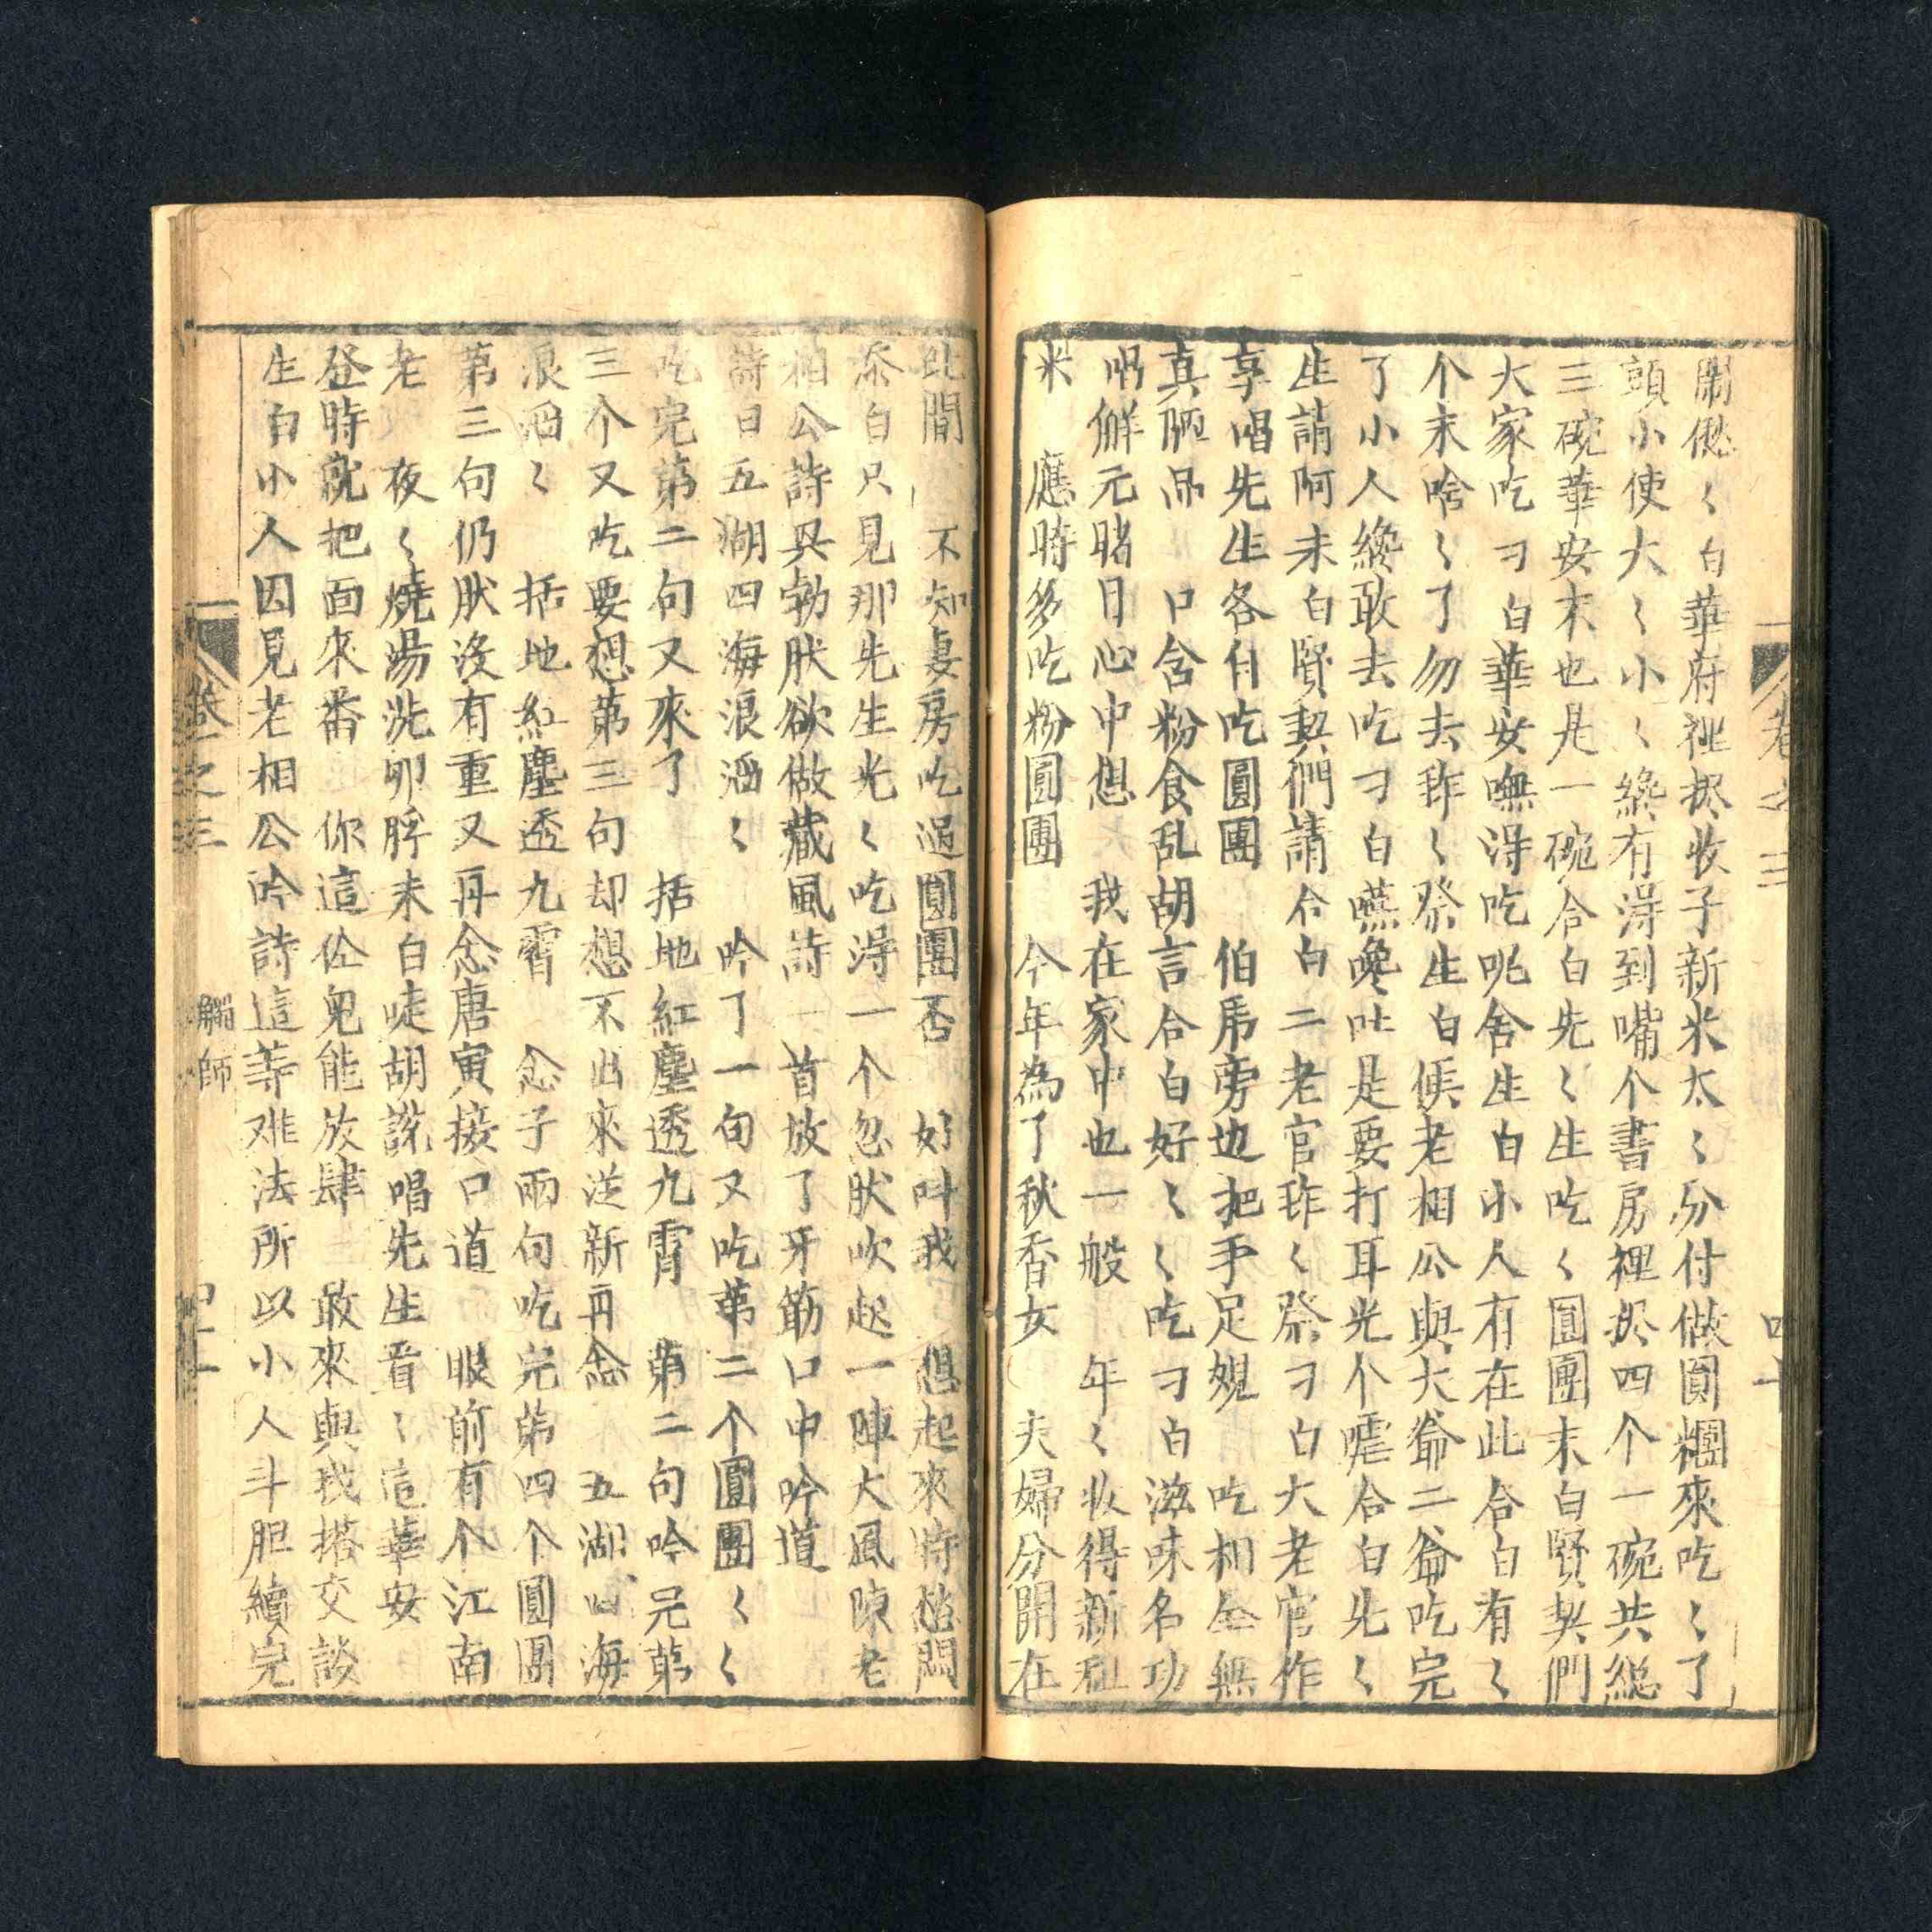 鬧僽〻白華府裡捱收子新米太〻分付做圓糰來吃〻了
頭小使大〻小〻纔有淂到嘴个書房裡捱四个一碗共総
三碗華安末也是一碗合白先〻生吃〻圓團末白賢契們
大家吃刁白華安嘸淂吃吪舍生白小人有在此合白有〻
个末啥〻了勿去拃〻祭生白候老相公與大爺二爺吃完
了小人纔敢去吃刁白嚥嚵吐是要打耳光个㖸合白先〻
生請阿末白賢契們請合白二老官拃〻祭刁白大老官作
享唱先生各自吃圓團 伯虎旁边把手足䂓 吃相全無
真陋品 口含粉食乱胡言合白好〻〻吃刁白滋味名功
唱觧元睹日心中想 我在家中也一般 年〻收得新租
米 應時多吃粉圓團 今年為了秋香女 夫婦分開在
此間 不知妻房吃過圓團否 好叫我 想起來時愁悶
添白只見那先生光〻吃淂一个忽肰吹起一陣大風陳老
相公詩興勃肰欲做藏風詩一首放了牙筯口中吟道
詩曰五湖四海浪滔〻 吟了一句又吃苐二个圓團〻〻
吃完第二句又來了 括地紅塵透九霄 第二句吟完第
三个又吃要想第三句却想不出來從新再念 五湖四海
浪滔〻 括地紅塵透九霄 念子兩句吃完苐四个圓團
第三句仍肰沒有重又再念唐寅接口道 眼前有个江南
老 夜〻燒湯洗卵脬末白嗳胡說唱先生看〻這華安
登時就把面來番 你這佐兒能放肆 敢來與我搭交談
生白小人因見老相公吟詩這等难法所以小人斗胆續完
卷之三 四十
卷之三 觴師 四十一